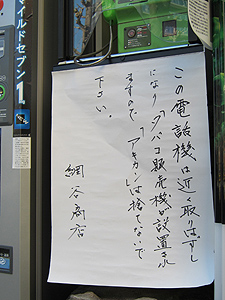 マイルドセブン
1.
この電話機は近く取りはずし
になり タバコ販売機が設置され
ますので、アキカンは捨てないで
下さい。
網谷商店